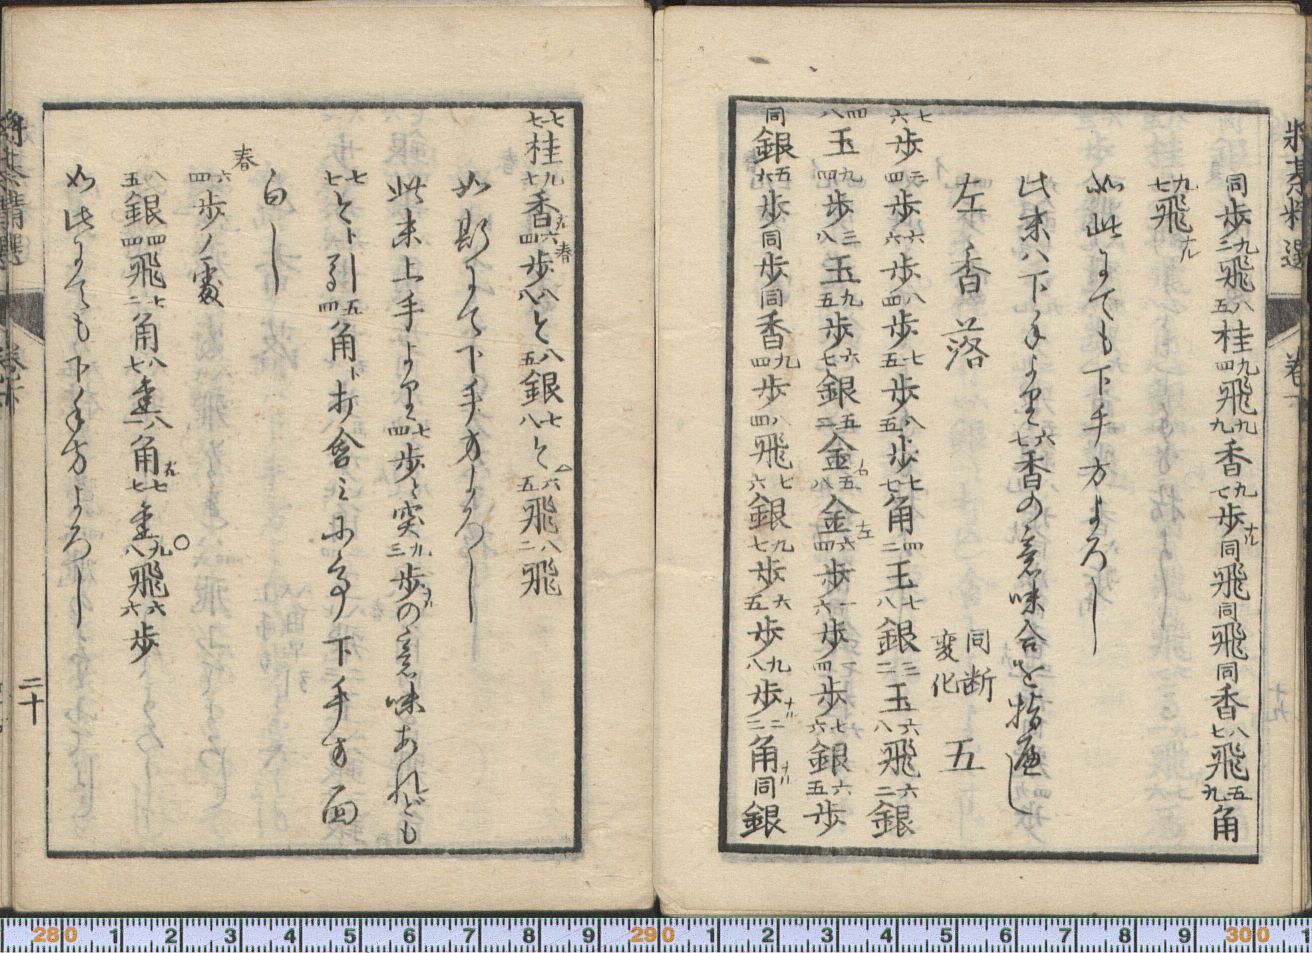 将棊精選
巻下
同歩二九飛五八桂四九飛九九香七九歩同飛同飛同香七八飛九五角
七九飛
如此にても下手方よろし
此末ハ下手より七六香の意味合を指麾し
左香落 同断変化 五
六七歩四三歩六六歩四八歩五七歩五八歩七七角二四玉八七銀二三玉八六飛二六銀
八四玉四九歩八三玉五九歩七六銀二五金八五金四六歩六一歩四一歩六七銀五六歩
同銀六五歩同歩同香四九歩四八飛六七銀七九歩五六歩八九歩二二角同銀
七七桂七九香四六歩八八と五八銀八七と五六飛二八飛
如斯にて下手方よろし
此末上手より四七歩と突三九歩の意味あれども
七七とト引四五角ト打含ミある下手方面
白し
春
四六歩ノ変
五八銀四四飛二七角七八金一八角七七金八九飛六六歩
如此にても下手方よろし
二十
将棊精選
巻下
280 1 2 3 4 5 6 7 8 9 290 1 2 3 4 5 6 7 8 9 300 1